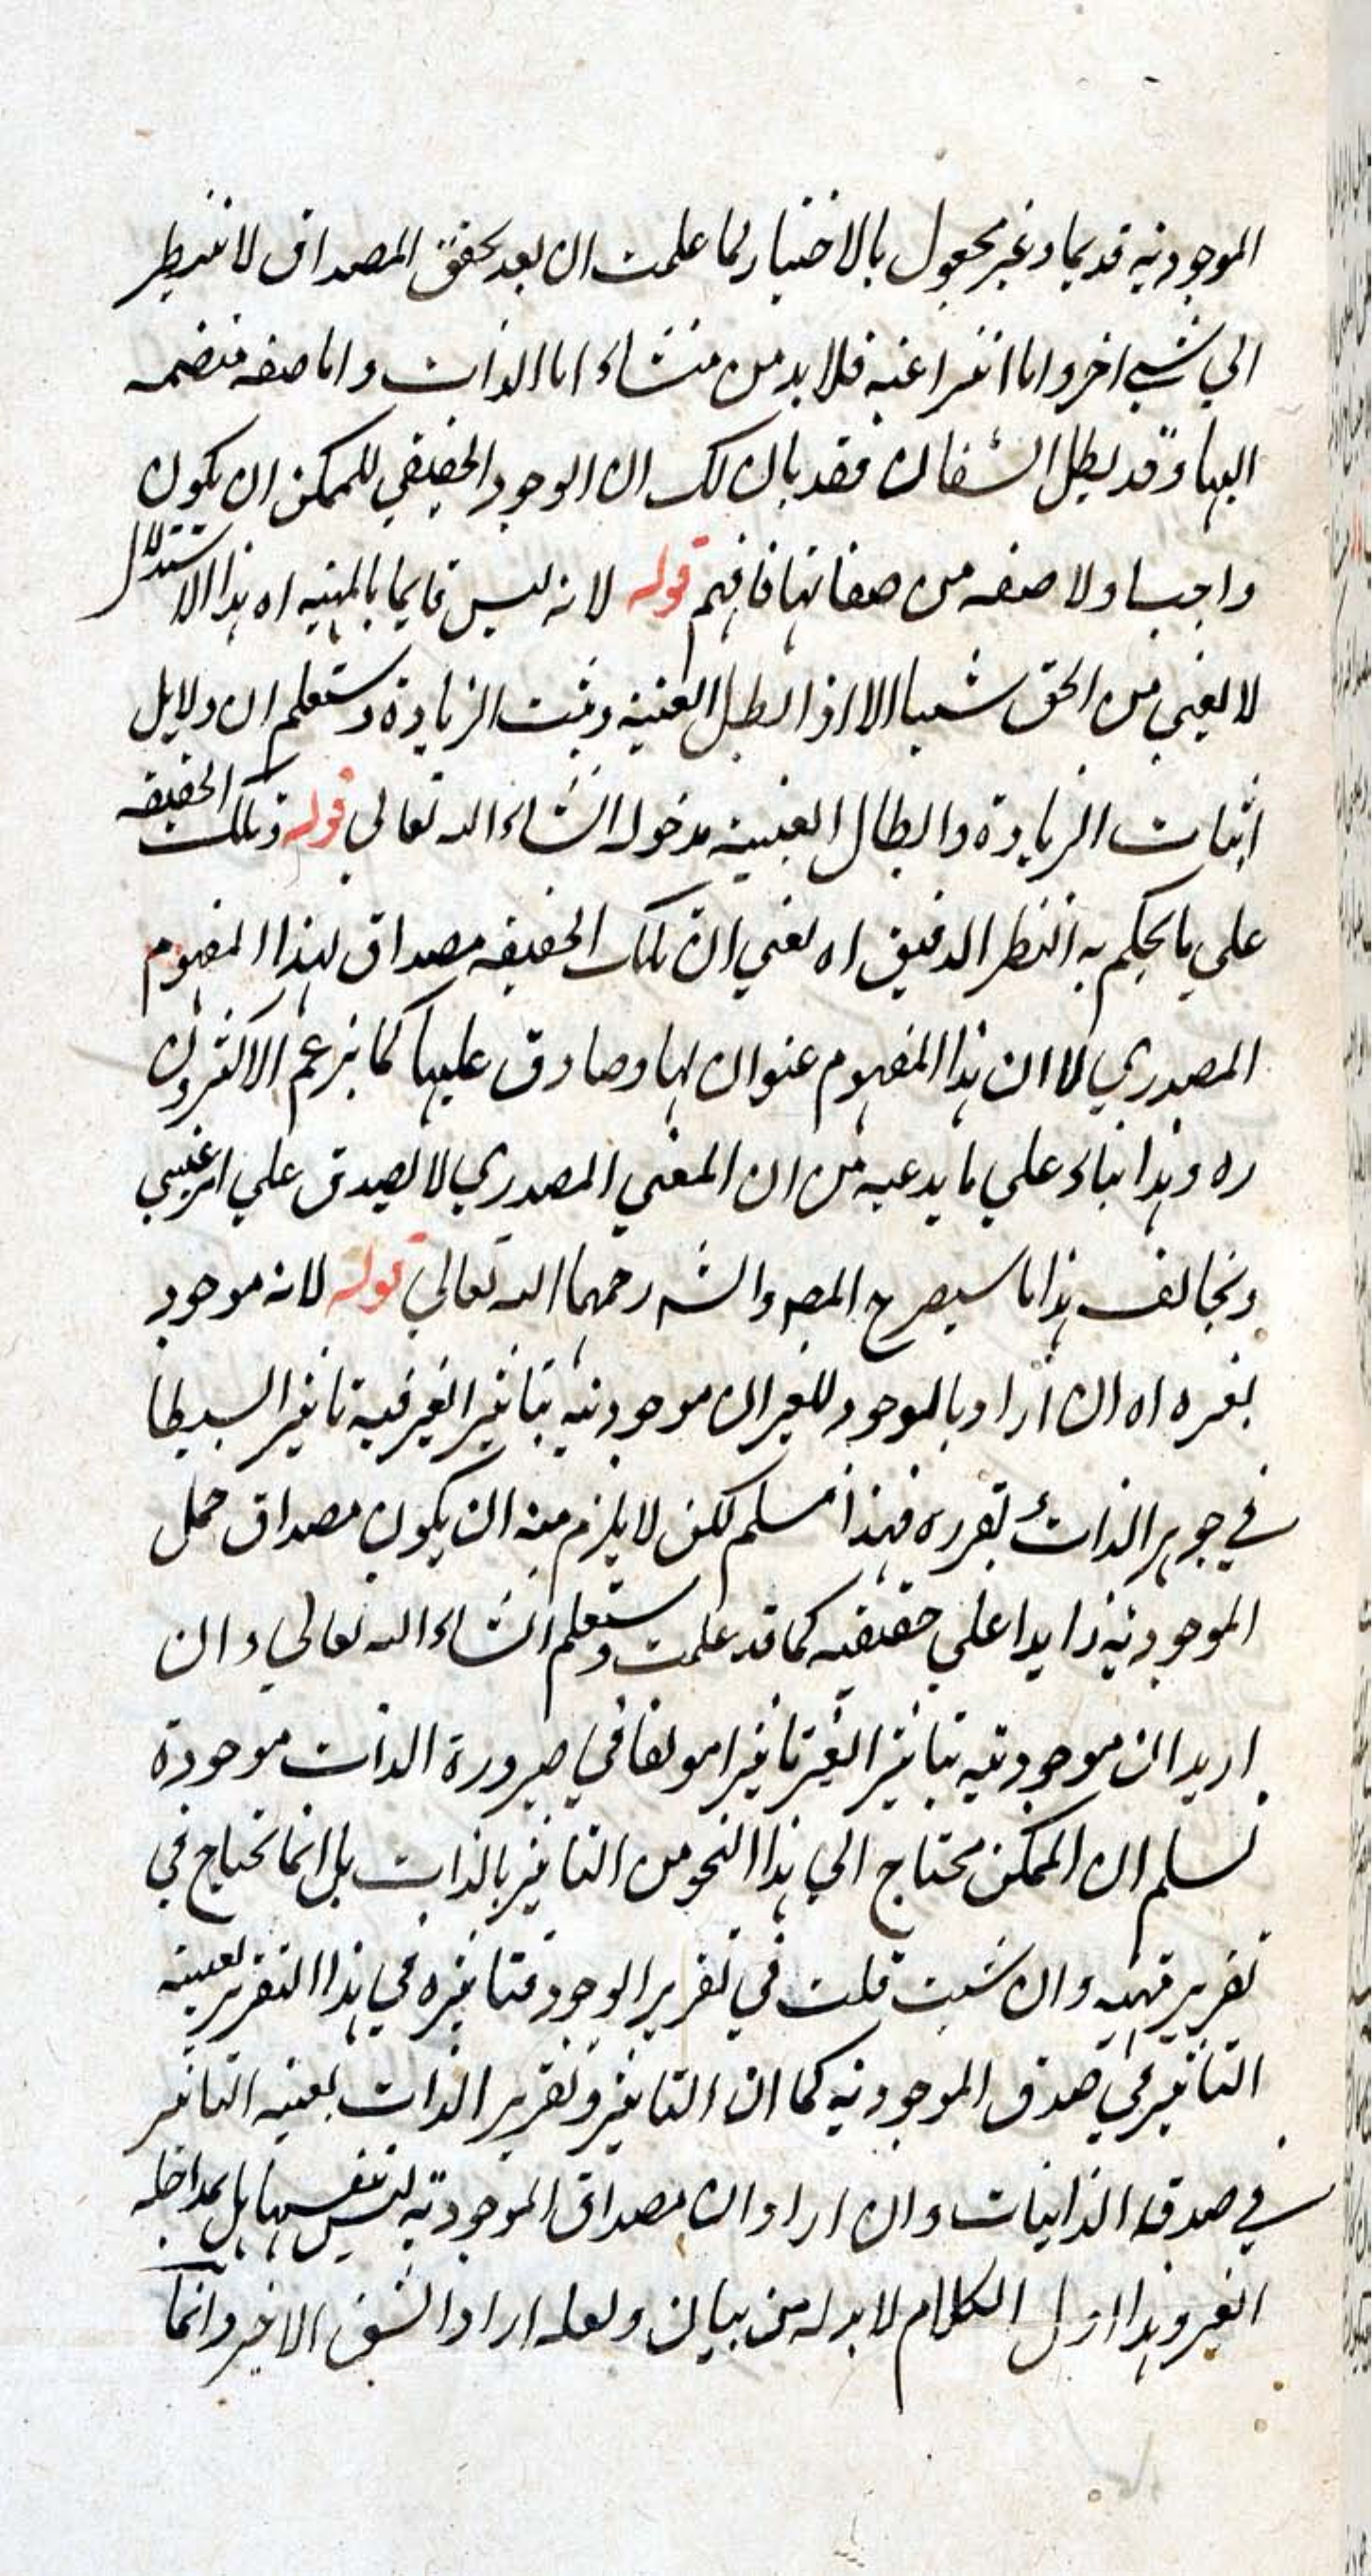 الموجودية قديما وغير مجعول بالاختيار لما علمت ان بعد تحقق المصداق لا ينتظر
الي شيء اخر واما انتزاعية فلا بد من منشاء اما الذات واما صفه منضمه
اليها وقد بطل الشقان فقد بان لك ان الوجود الحقيقي للممكن ان يكون
واجبا ولا صفه من صفاتها فافهم قوله لانه ليس قايما بالمهيه اه هذا الاستدلال
لا يغني من الحق شيا الا اذا ابطل العينية وثبت الزيادة وستعلم ان دلايل
اثبات الزيادة وابطال العينية مدخوله انشاء الله تعالي قوله وتلك الحقيقه
علي ما يحكم به النظر الدقيق اه يعني ان تلك الحقيقه مصداق لهذا المفهوم
المصدري لا ان هذا المفهوم عنوان لها وصادق عليها كما يزعم الاكثرون
ره وهذا بناء علي ما يدعيه من ان المعني المصدري لا يصدق علي امر عيني
ويخالف هذا ما سيصرح المصـ والشـ رحمهما الله تعالي قوله لانه موجود
بغيره اه ان اراد بالموجود للغير ان موجوديته بتاثير الغير فيه تاثيرا بسيطا
في جوهر الذات بتقرره فهذا مسلم لكن لا يلزم منه ان يكون مصداق حمل
الموجودية زايدا علي حقيقيه كما قد علمت وستعلم انشاء الله تعالي وان
اريد ان موجوديته بتاثير الغير تاثيرا مولفا في صيرورة الذات موجودة
نسلم ان الممكن محتاج الي هذا النحو من التاثير بالذات بل انما تحتاج في
تقرير مهيه وان شيت قلت في تقرير الوجود فتاثيره في هذا التقرير بعينه
التاثير في صدق الموجودية كما ان التاثير وتقرير الذات بعينه التاثير
في صدقه الذاتيات وان اراد ان مصداق الموجودية ليس نفسها بل بمداخله
الغير وهذا اول الكلام لا بد له من بيان ولعله اراد الشق الاخير وانما